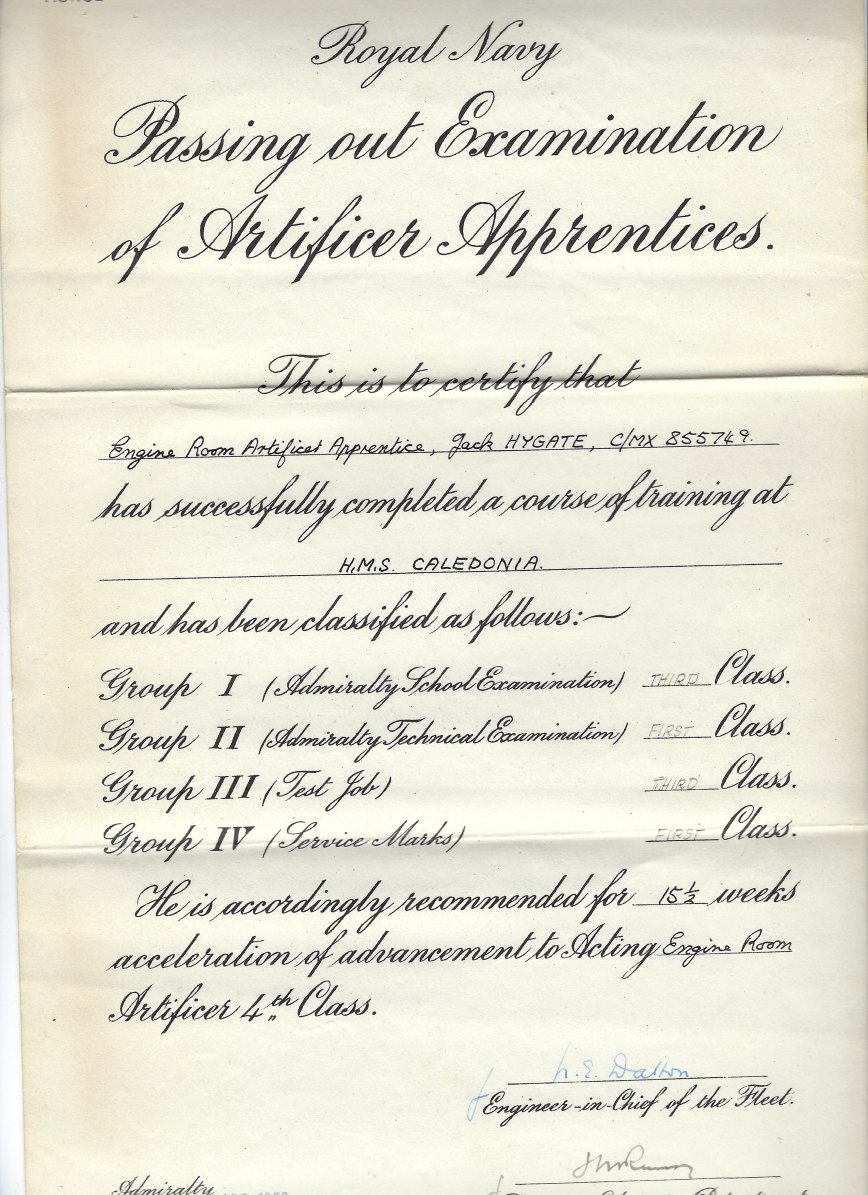 Royal Navy
Passing out Examination
of Artificer Apprentices.
This is to certify that
Engine Room Artificer Apprentice, Jack HYGATE, C/MX 855749.
has successfully completed a course of training at
H.M.S. CALEDONIA.
and has been classified as follows:~
Group I (Admiralty School Examination) THIRD Class.
Group II (Admiralty Technical Examination) FIRST Class.
Group III (Test Job) THIRD Class.
Group IV (Service Marks) FIRST Class.
He is accordingly recommended for 15½ weeks
acceleration of advancement to Acting Engine Room
Artificer 4th Class.
Dalton
Engineer-in-Chief of the Fleet.
Admiralty